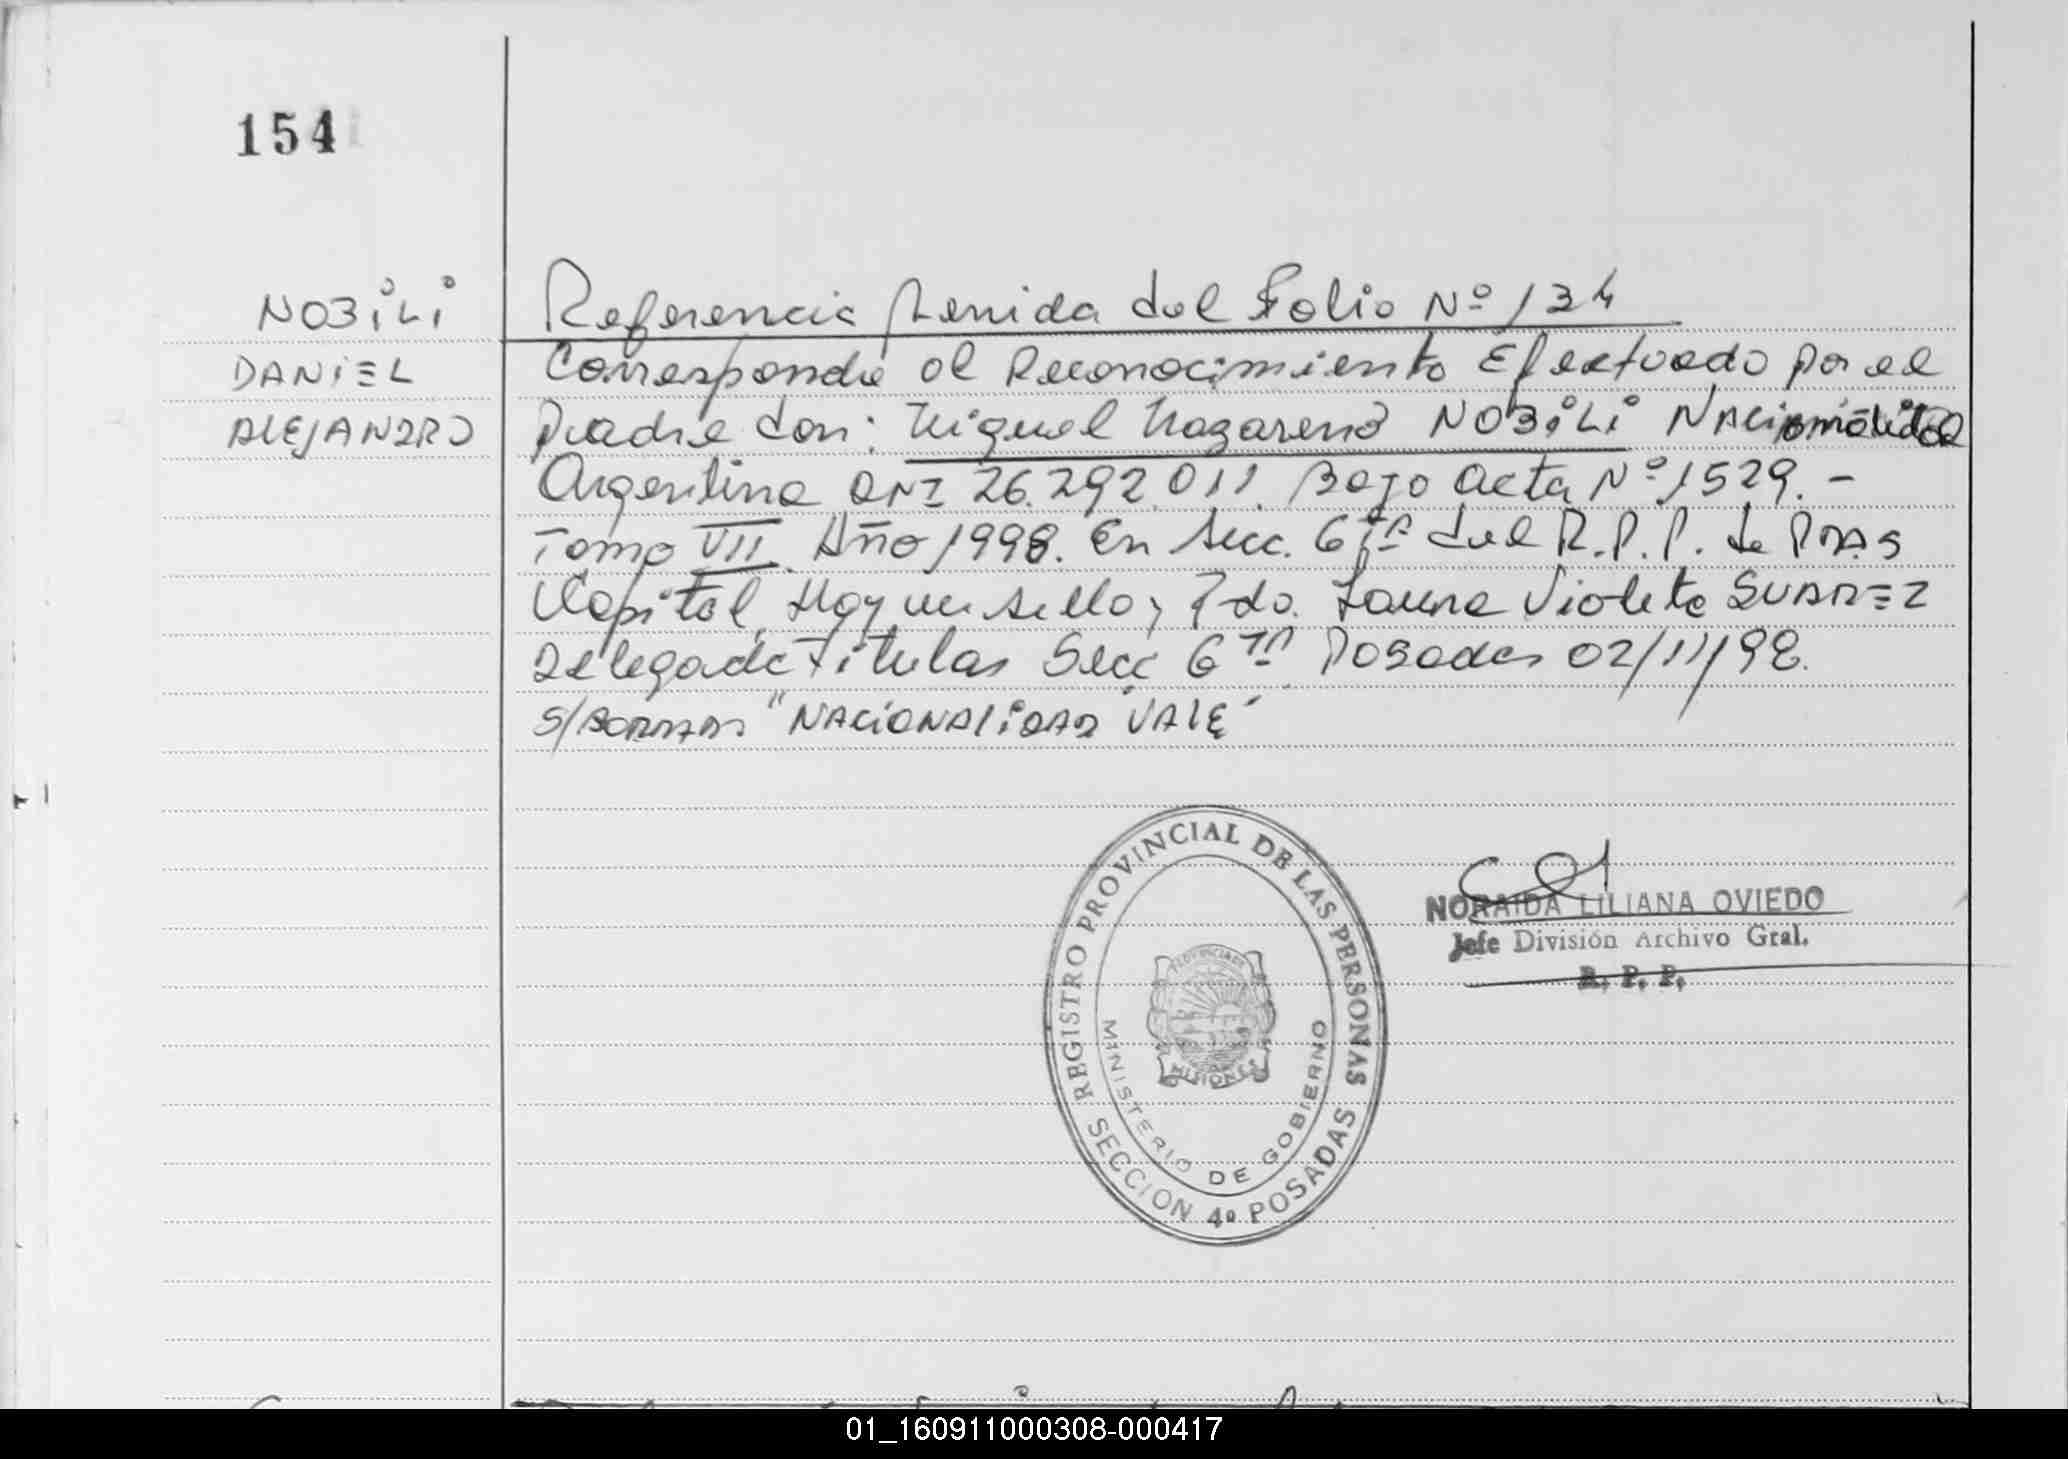 154
NOBiLi
DANiEL
ALEJANDRO
Referencia Venida del Folio Nº 134
Corresponde al Reconocimiento Efectuado por el
Padre don: Miguel Nazareno NOBiLi Nacionalidad
Argentina DNI 26.292.011. Bajo Acta Nº 1529. -
Tomo VII. Año 1998. En Secc. 6ta del R.P.P. de Pdas
Capital. Hay un sello y Fdo. Laura Violeta SUAREZ
Delegada Titular Secc 6ta Posadas 02/11/98.
S/BORRADO "NACIONALIDAD VALE"
REGISTRO PROVINCIAL DE LAS PERSONAS
SECCION 4º POSADAS
MINISTERIO DE GOBIERNO
PROVINCIA DE
MISIONES
NORAIDA LILIANA OVIEDO
Jefe División Archivo Gral.
R. P. P.
01_160911000308-000417